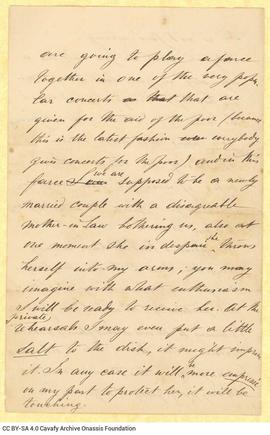 are going to play a farce
together in one of the very popu
lar concerts as that that are
given for the aid of the poor (because
this is the latest fashion everybody
gives concerts for the poor) and in this
farce we are supposed to be a newly
married couple with a disagreeable
mother-in-law bothering us, also at
one moment she in despair the throws
herself into my arms; you may
imagine with what enthusiasm
I will be ready to receive her. At the
private rehearsals I may even put a little
salt to the dish, it might improve
it. In any case it will "
on my part to protect her, it will be
touching.
CC BY-SA 4.0 Cavafy Archive Onassis Foundation